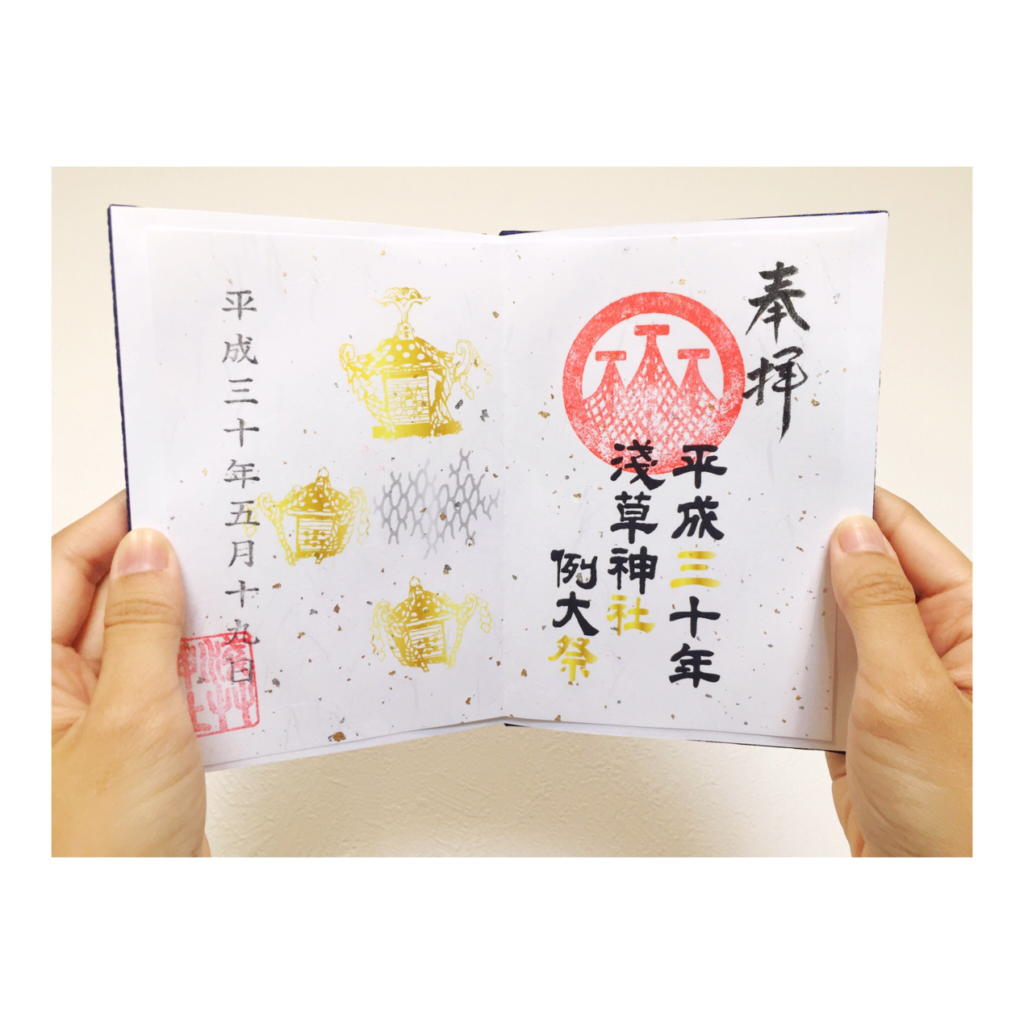 奉拝
平成三十年
淺草神社
例大祭
平成三十年五月十九日